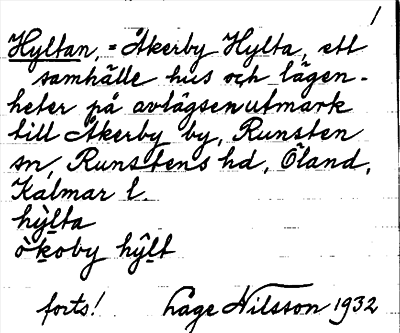 1
Hyltan, = Åkerby Hylta, ett
samhälle hus och lägen-
heter på avlägsen utmark
till Åkerby by, Runsten
sn, Runstens hd, Öland,
Kalmar l.
hỳḻta
òḵoby hŷḻt
forts! Åge Nilsson 1932